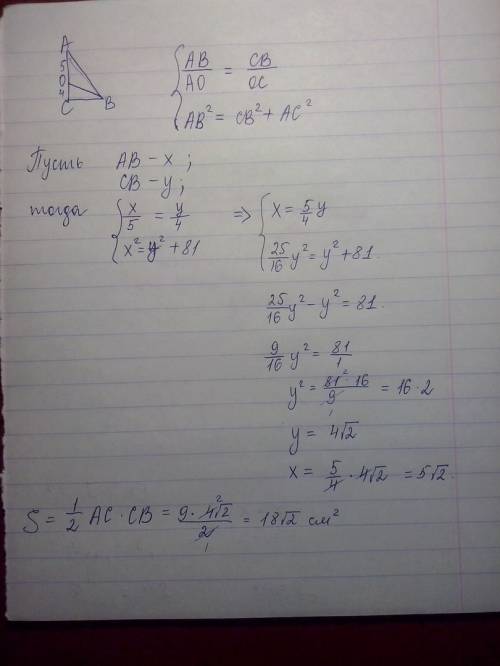 A
5
O
4
C B
{ AB/AO = CB/OC
AB² = CB² + AC²
Пусть AB – x ;
CB – y ;
тогда { x/5 = y/4 => { x = 5/4 y
x² = y² + 81 25/16 y² = y² + 81.
25/16 y² – y² = 81.
9/16 y² = 81/1
y² = 81² · 16 / 9 1 = 16 · 2
y = 4√2
x = 5/4 · 4√2 = 5√2.
S = 1/2 AC · CB = 9 · 4² √2 / 2 1 = 18√2 см²